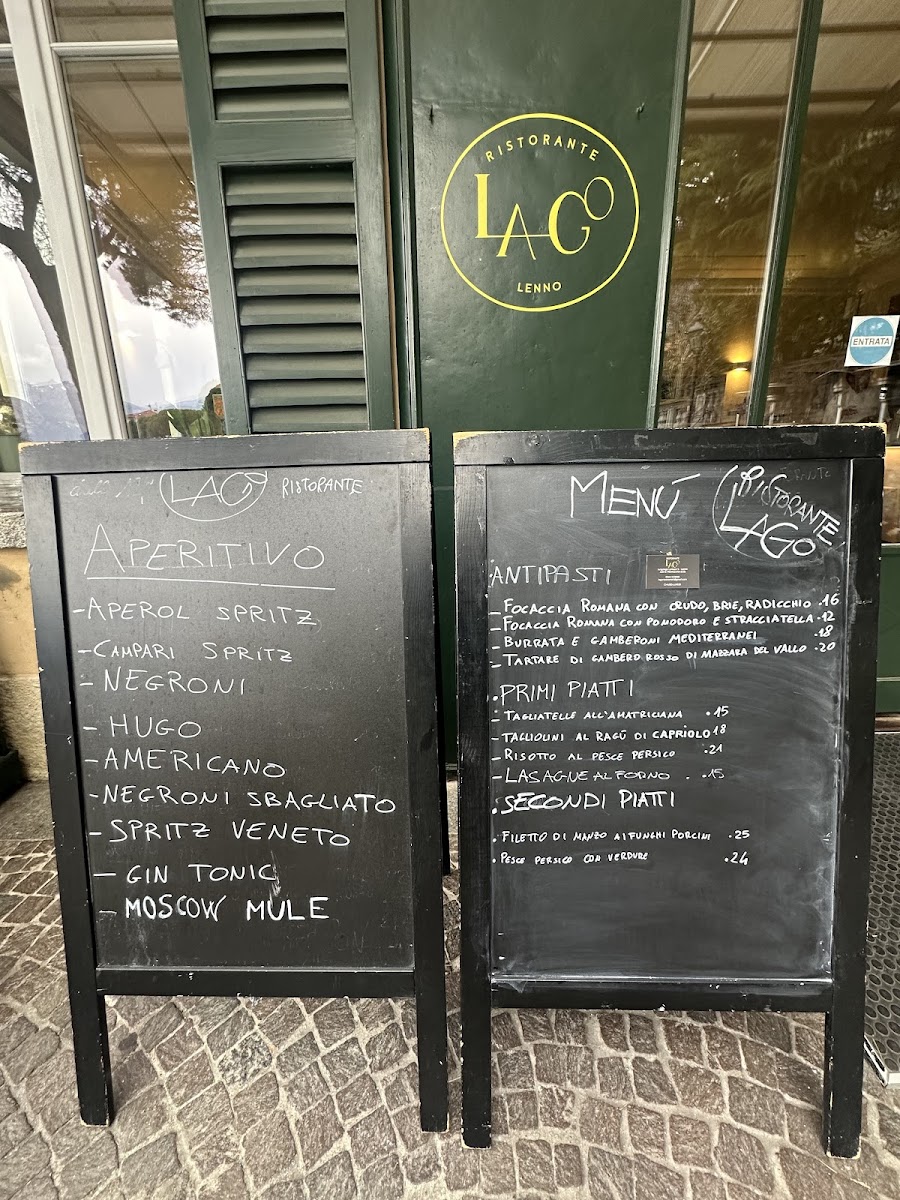 RISTORANTE
LAGO
LENNO
ENTRATA
LAGO RISTORANTE
APERITIVO
-APEROL SPRITZ
-CAMPARI SPRITZ
-NEGRONI
-HUGO
-AMERICANO
-NEGRONI SBAGLIATO
-SPRITZ VENETO
-GIN TONIC
-MOSCOW MULE
MENÚ
RISTORANTE
LAGO
.ANTIPASTI
LAGO
-FOCACCIA ROMANA CON CRUDO, BRIE, RADICCHIO .16
-FOCACCIA ROMANA CON POMODORO E STRACCIATELLA .12
-BURRATA E GAMBERONI MEDITERRANEI .18
-TARTARE DI GAMBERO ROSSO DI MAZZARA DEL VALLO .20
.PRIMI PIATTI
-TAGLIATELLE ALL'AMATRICIANA .15
-TAGLIOLINI AL RAGÚ DI CAPRIOLO 18
-RISOTTO AL PESCE PERSICO .21
-LASAGNE AL FORNO . .15
.SECONDI PIATTI
.FILETTO DI MANZO AI FUNGHI PORCINI .25
.PESCE PERSICO CON VERDURE .24